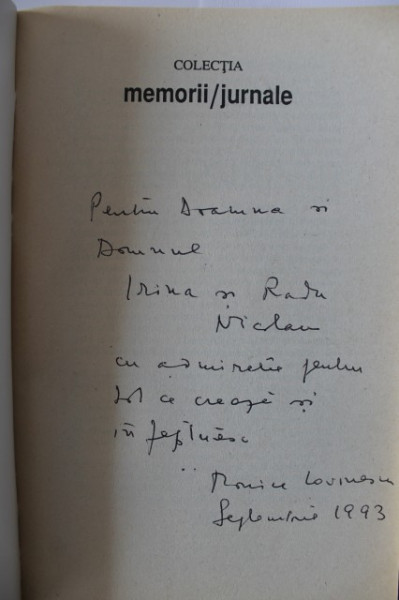 COLECȚIA
memorii/jurnale
Pentru Doamna și
Domnul
Irina și Radu
Nicolau
cu admirație pentru
tot ce crează și
înfăptuiesc
Monica Lovinescu
Septembrie 1993